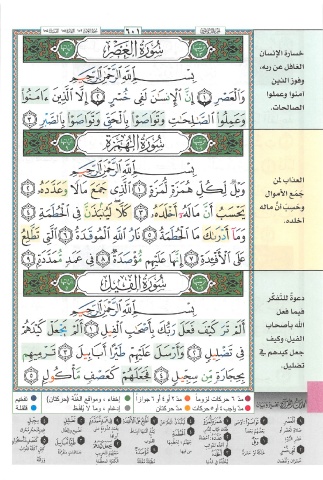 ٦٠١
سُورَةُ العَصْرِ
بِسْمِ اللَّهِ الرَّحْمَٰنِ الرَّحِيمِ
وَالْعَصْرِ ۝١ إِنَّ الْإِنسَٰنَ لَفِى خُسْرٍ ۝٢ إِلَّا الَّذِينَ ءَامَنُوا
وَعَمِلُوا الصَّٰلِحَٰتِ وَتَوَاصَوْا بِالْحَقِّ وَتَوَاصَوْا بِالصَّبْرِ ۝٣
سُورَةُ الهُمَزَةِ
بِسْمِ اللَّهِ الرَّحْمَٰنِ الرَّحِيمِ
وَيْلٌ لِّكُلِّ هُمَزَةٍ لُّمَزَةٍ ۝١ الَّذِى جَمَعَ مَالًا وَعَدَّدَهُۥ ۝٢
يَحْسَبُ أَنَّ مَالَهُۥٓ أَخْلَدَهُۥ ۝٣ كَلَّا لَيُنۢبَذَنَّ فِى الْحُطَمَةِ ۝٤
وَمَآ أَدْرَىٰكَ مَا الْحُطَمَةُ ۝٥ نَارُ اللَّهِ الْمُوقَدَةُ ۝٦ الَّتِى تَطَّلِعُ
عَلَى الْأَفْـِٔدَةِ ۝٧ إِنَّهَا عَلَيْهِم مُّؤْصَدَةٌ ۝٨ فِى عَمَدٍ مُّمَدَّدَةٍۭ ۝٩
سُورَةُ الفِيلِ
بِسْمِ اللَّهِ الرَّحْمَٰنِ الرَّحِيمِ
أَلَمْ تَرَ كَيْفَ فَعَلَ رَبُّكَ بِأَصْحَٰبِ الْفِيلِ ۝١ أَلَمْ يَجْعَلْ كَيْدَهُمْ
فِى تَضْلِيلٍ ۝٢ وَأَرْسَلَ عَلَيْهِمْ طَيْرًا أَبَابِيلَ ۝٣ تَرْمِيهِم
بِحِجَارَةٍ مِّن سِجِّيلٍ ۝٤ فَجَعَلَهُمْ كَعَصْفٍ مَّأْكُولٍۭ ۝٥
خسارة الإنسان
الغافل عن ربه،
وفوز الذين
آمنوا وعملوا
الصالحات.
العذاب لمن
جَمَع الأموال
وحَسِبَ أنَّ ماله
أخلده.
دعوةٌ للتفكّر
فيما فعل
الله بأصحاب
الفيل، وكيف
جعل كيدهم في
تضليل.
مدّ ٦ حركات لزوماً مدّ ٢ أو ٤ أو ٦ جوازاً إخفاء، ومواقع الغُنَّة (حركتان) تفخيم
مدّ واجب ٤ أو ٥ حركات مدّ حركتان إدغام، وما لا يُلفَظ قلقلة